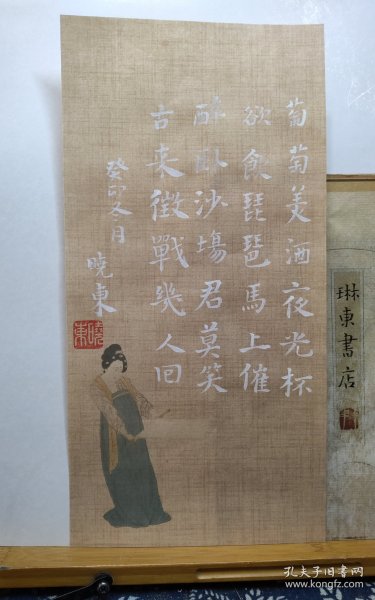 葡萄美酒夜光杯
欲飲琵琶馬上催
醉臥沙場君莫笑
古来徵戰幾人回
癸卯冬月
曉東
曉東
琳東書店
孔夫子旧书网
www.kongfz.com